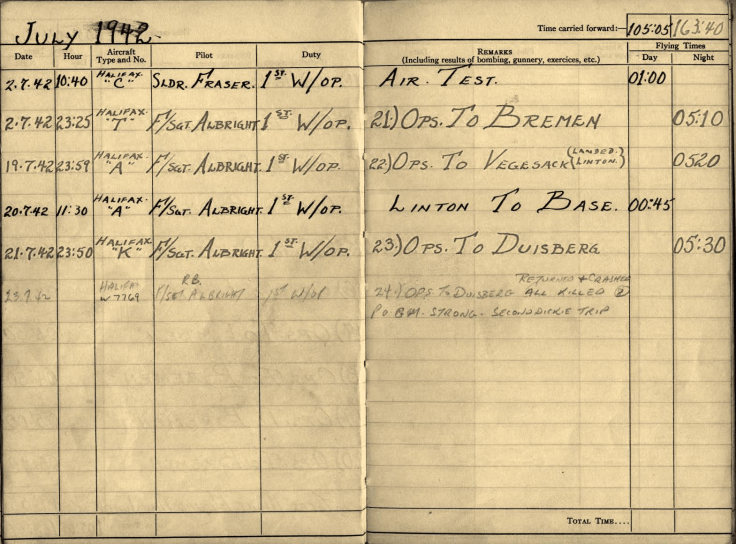 JULY 1942.
Time carried forward:— 105:05 163:40
Date Hour Aircraft Type and No. Pilot Duty REMARKS (Including results of bombing, gunnery, exercices, etc.) Flying Times Day Night
2.7.42 10:40 HALIFAX. "C" S/LDR. FRASER. 1ST W/OP. AIR. TEST. 01:00
2.7.42 23:25 HALIFAX "T" F/SGT. ALBRIGHT 1ST. W/OP. 21) OPS. TO BREMEN 05:10
19.7.42 23:59 HALIFAX "A" F/SGT. ALBRIGHT. 1ST W/OP. 22) OPS. TO VEGESACK (LANDED. LINTON.) 0520
20.7.42 11:30 HALIFAX. "A" F/SGT. ALBRIGHT. 1ST W/OP. LINTON TO BASE. 00:45
21.7.42 23:50 HALIFAX "K" F/SGT. ALBRIGHT. 1ST. W/OP. 23) OPS. TO DUISBERG 05:30
R.B. RETURNED & CRASHED
23.7.42 HALIFAX W7769 F/SGT ALBRIGHT 1ST W/OP 24) OPS TO DUISBERG ALL KILLED
P/O B.M. STRONG - SECOND DICKIE TRIP
TOTAL TIME....